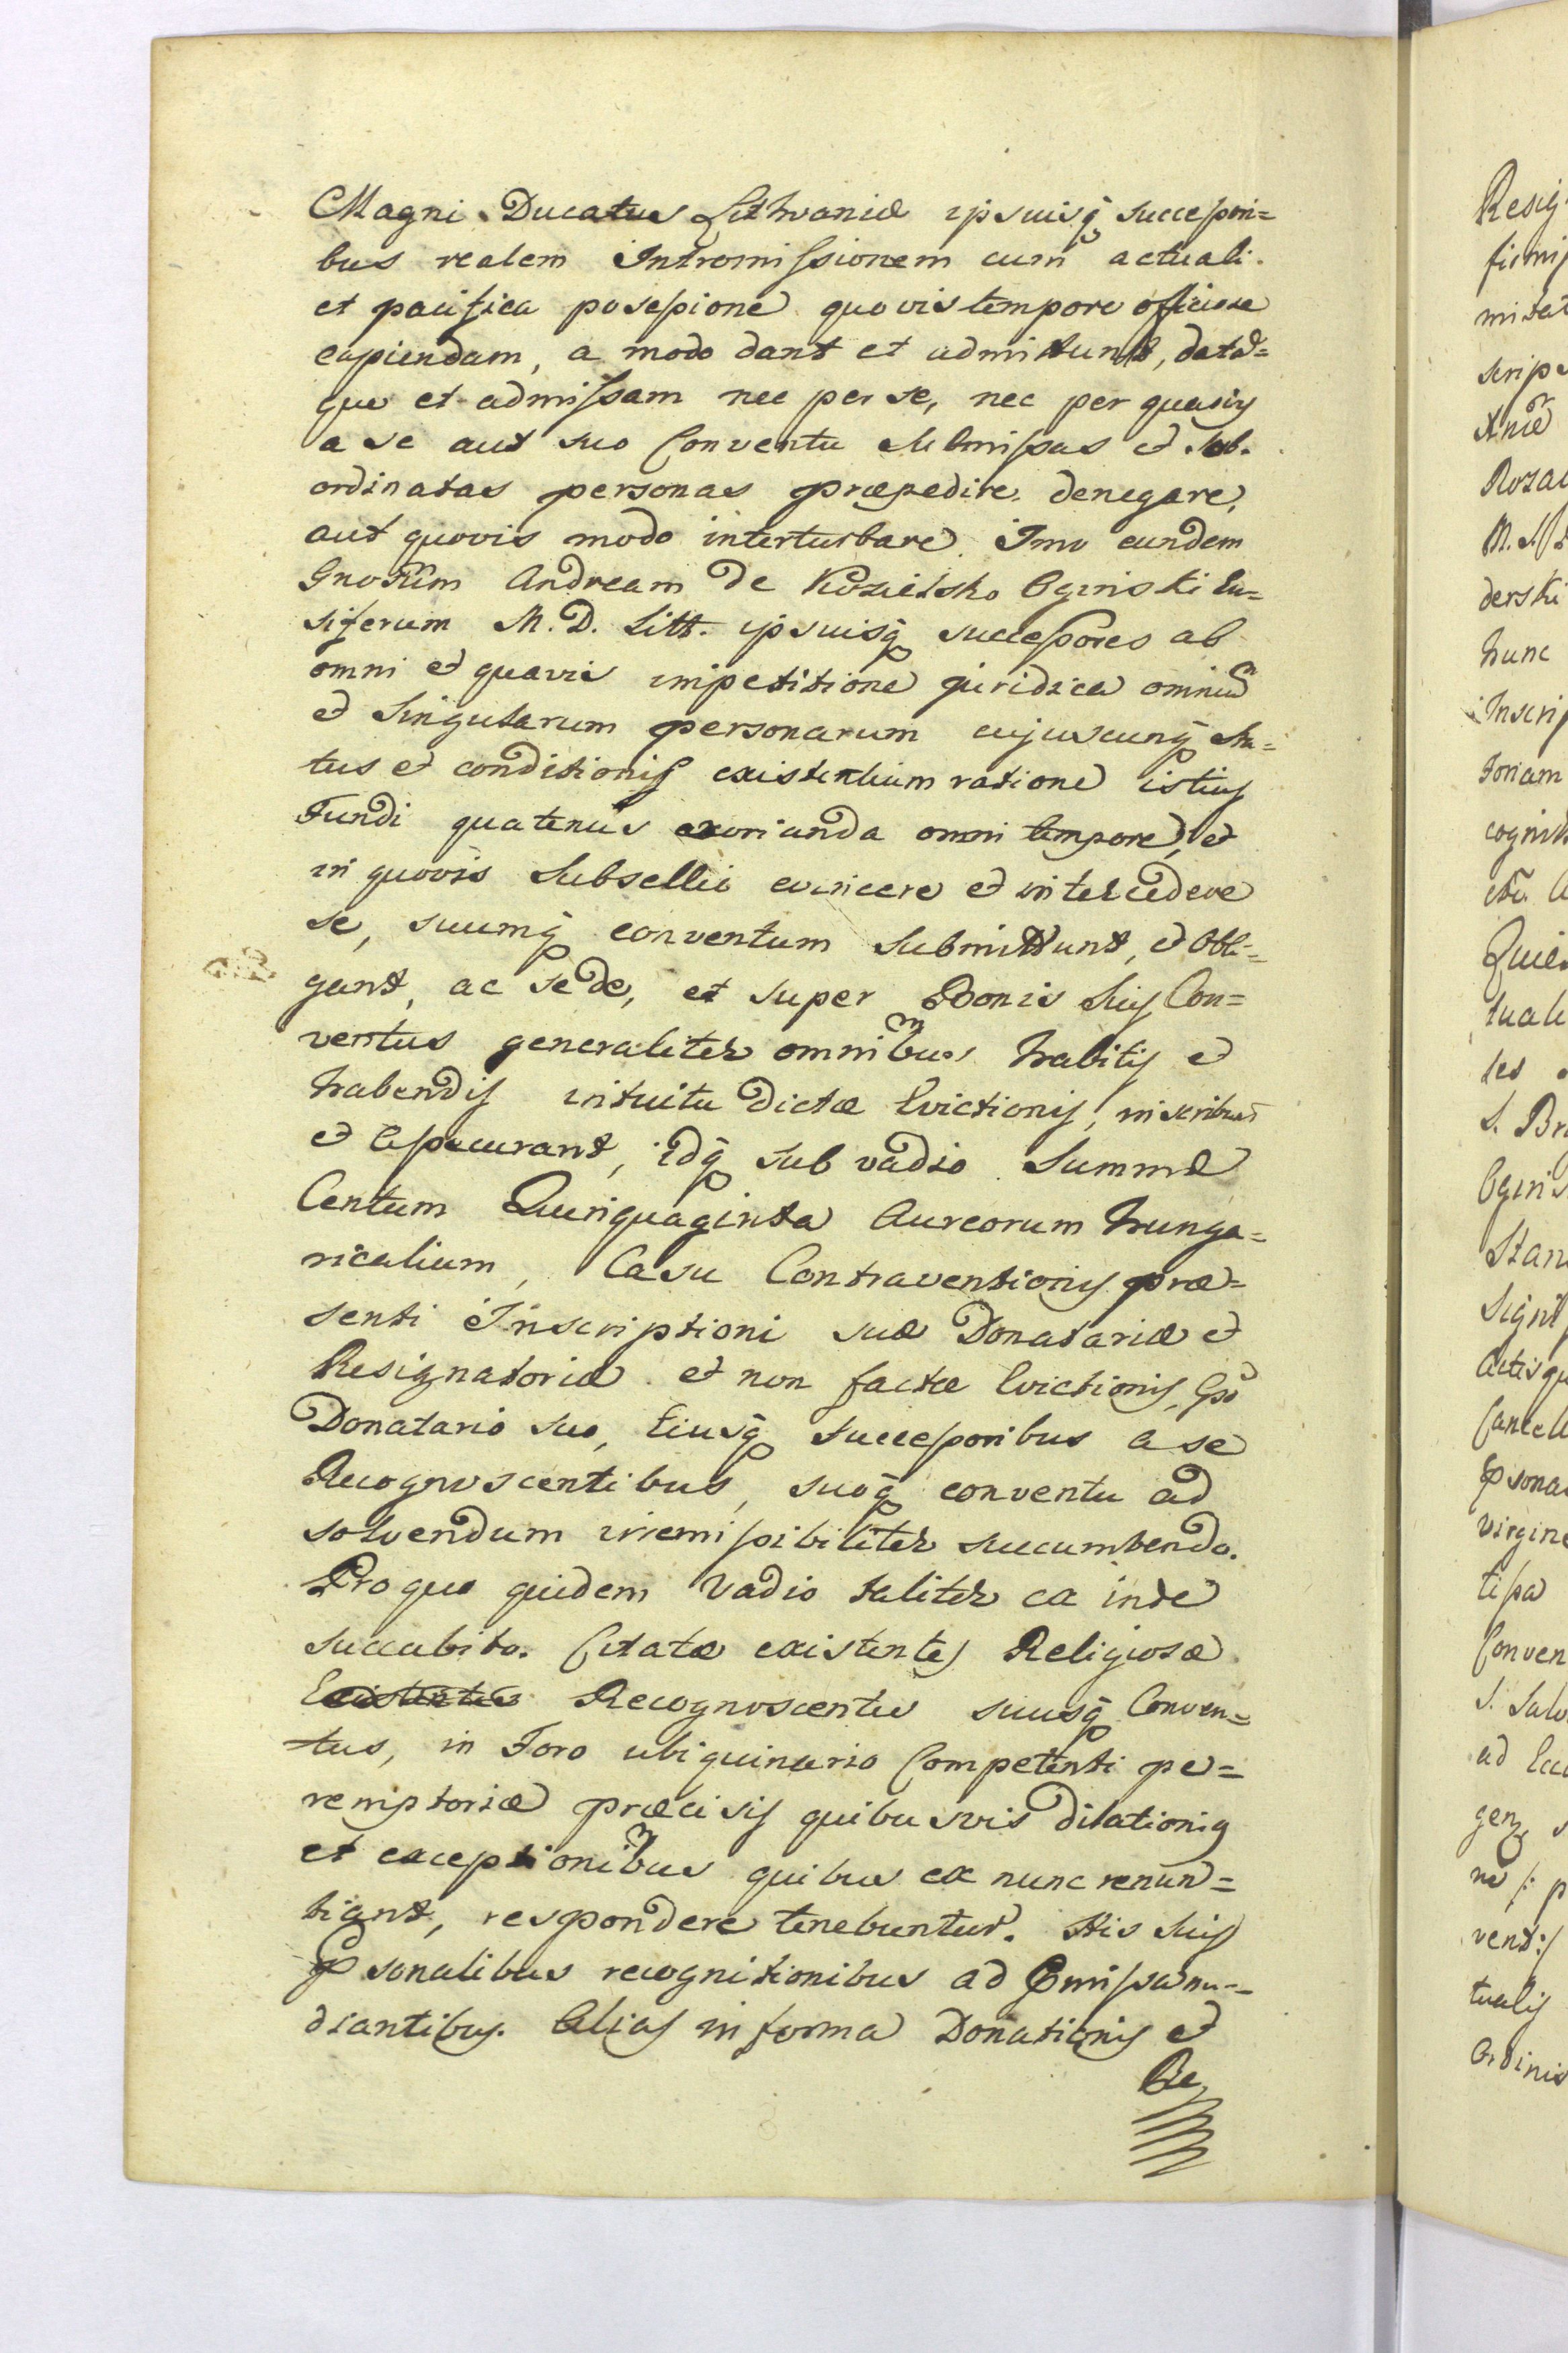 Magni Ducatus Lithvaniæ ipsuisq; successori=
bus realem Intromissionem cum actuali
et pacifica possessione quovis tempore officiose
capiendam, a modo dant et admittunt, datā=
que et admissam nec per se, nec per quasvis
a se aut suo Conventu submissas et sub.
ordinatas personas præpedire, denegare,
aut quovis modo interturbare. Imo eundem
Gnosum Andream de Kozielsko Oginski En=
siferum M. D. Litt. ipsuisq; successores ab
omni et quavis impetitione juridica omniū
et singularum personarum cujuscunq; sta=
tus et conditionis existentium ratione istius
Fundi quatenus exorianda omni tempore, et
in quovis Subsellio evincere et intercedere
se, suumq; conventum submittunt, et obli=
gant, ac se de, et super Bonis suis Con=
ventus generaliter omnibus habitis et
habendis intuitu dictæ Evictionis, inscribunt
et assecurant, idq; sub vadio Summæ
Centum Quinquaginta Aureorum hunga=
ricalium, Casu Contraventionis præ=
senti Inscriptioni suæ Donatariæ et
Resignatoriæ et non factæ Evictionis, Gso
Donatario suo, Eiusq; successoribus a se
Recognoscentibus, suoq; conventu ad
solvendum irremissibiliter succumbendo.
Pro quo quidem Vadio taliter ex inde
succubito. Citatæ existentes Religiosæ
Existentes Recognoscentes suusq; Conven=
tus, in Foro ubiquinario Competenti pe=
remptorie præcisis quibusvis dilationi9
et exceptionibus quibus ex nunc renun=
tiant, respondere tenebuntur. His suis
psonalibus recognitionibus ad Pmissa me=
diantibus. Alias in forma Donationis et
Re
Resig
firmis
mitat
scrips
Rozal
derski
hunc
Inscrip
toriam
cognit
tuali
S. Br
Ogins
Stan
Actisqu
Cancell
psona
virgine
tissa
Conven
S. Salv
ad Ecc
vent:/
tualis
Ordinis